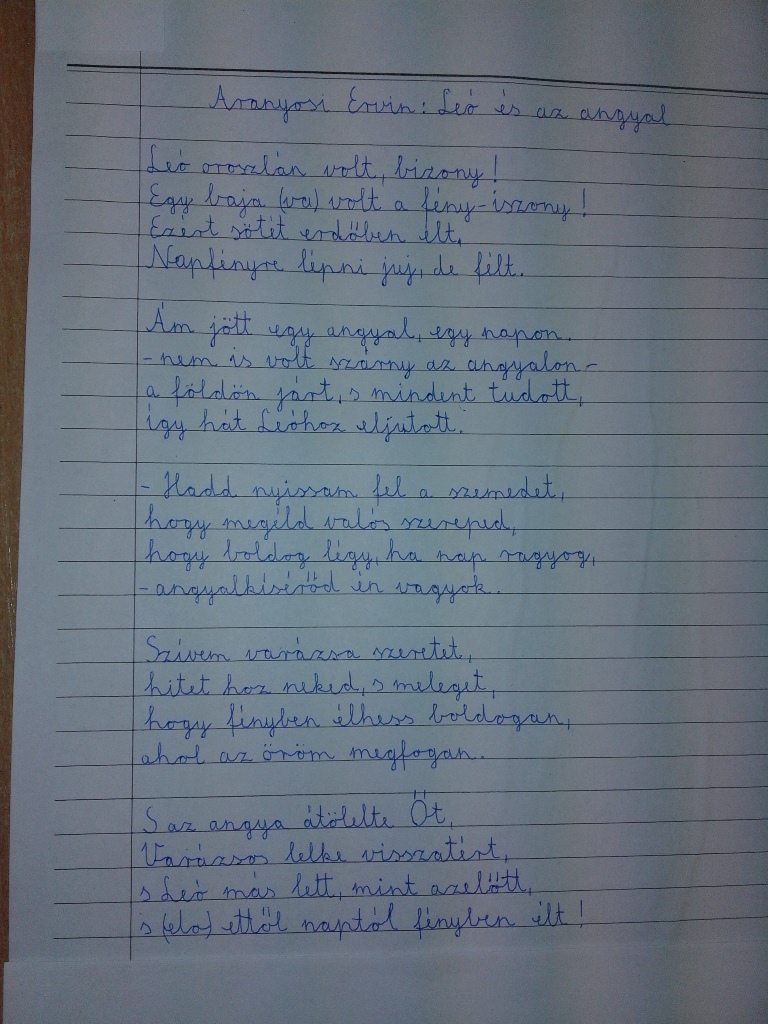 Aranyosi Ervin: Leó és az angyal
Leó oroszlán volt, bizony!
Egy baja (va) volt a fény-iszony!
Ezért sötét erdőben élt,
Napfényre lépni juj, de félt.
Ám jött egy angyal, egy napon.
- nem is volt szárny az angyalon -
a földön járt, s mindent tudott,
így hát Leóhoz eljutott.
- Hadd nyissam fel a szemedet,
hogy megéld valós szereped,
hogy boldog légy, ha nap ragyog,
- angyalkísérőd én vagyok.
Szívem varázsa szeretet,
hitet hoz neked, s meleget,
hogy fényben élhess boldogan,
ahol az öröm megfogan.
S az angya átölelte Őt,
Varázsos lelke visszatért,
s Leó más lett, mint azelőtt,
s (elo) ettől naptól fényben élt!